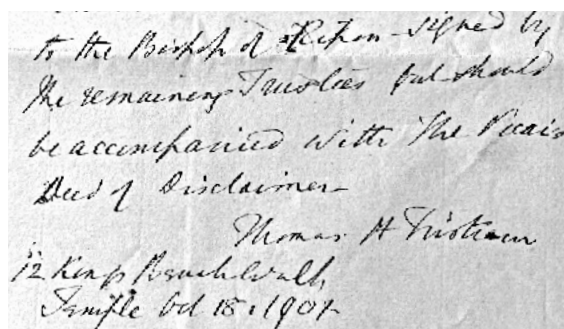 to the Bishop of Ripon signed by
the remaining Trustees but should
be accompanied with the Vicar's
Deed of Disclaimer
Thomas H Tristram
12 Kings Bench Walk
Temple Oct 18. 1901